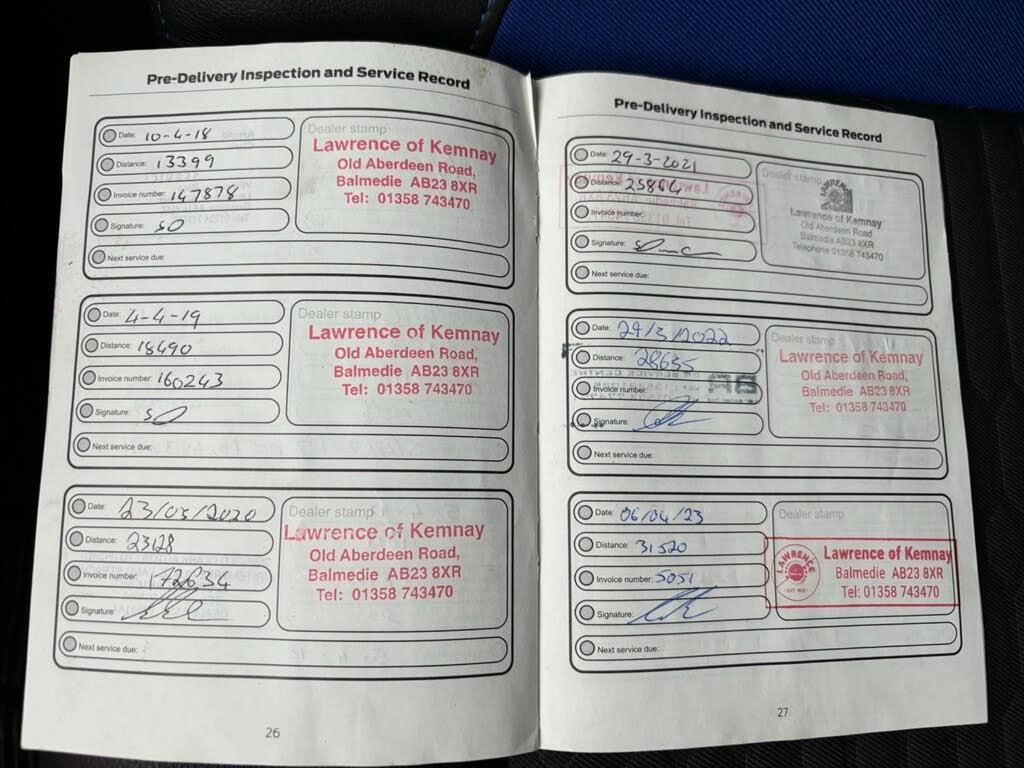 Pre-Delivery Inspection and Service Record
Date: 10-4-18
Distance: 13399
Invoice number: 147878
Signature: SO
Next service due:
Dealer stamp
Lawrence of Kemnay
Old Aberdeen Road,
Balmedie AB23 8XR
Tel: 01358 743470
Date: 4-4-19
Distance: 18490
Invoice number: 160243
Signature: SO
Next service due:
Dealer stamp
Lawrence of Kemnay
Old Aberdeen Road,
Balmedie AB23 8XR
Tel: 01358 743470
Date: 23/03/2020
Distance: 23128
Invoice number: 172634
Signature:
Next service due:
Dealer stamp
Lawrence of Kemnay
Old Aberdeen Road,
Balmedie AB23 8XR
Tel: 01358 743470
26
Pre-Delivery Inspection and Service Record
Date: 29-3-2021
Distance: 25864
Invoice number:
Signature:
Next service due:
Dealer stamp
LAWRENCE
Lawrence of Kemnay
Old Aberdeen Road
Balmedie AB23 8XR
Telephone 01358 743470
Date: 24/3/2022
Distance: 28635
Invoice number:
Signature:
Next service due:
Dealer stamp
Lawrence of Kemnay
Old Aberdeen Road,
Balmedie AB23 8XR
Tel: 01358 743470
Date: 06/04/23
Distance: 31520
Invoice number: 5051
Signature:
Next service due:
Dealer stamp
LAWRENCE
Lawrence of Kemnay
Balmedie AB23 8XR
Tel: 01358 743470
27